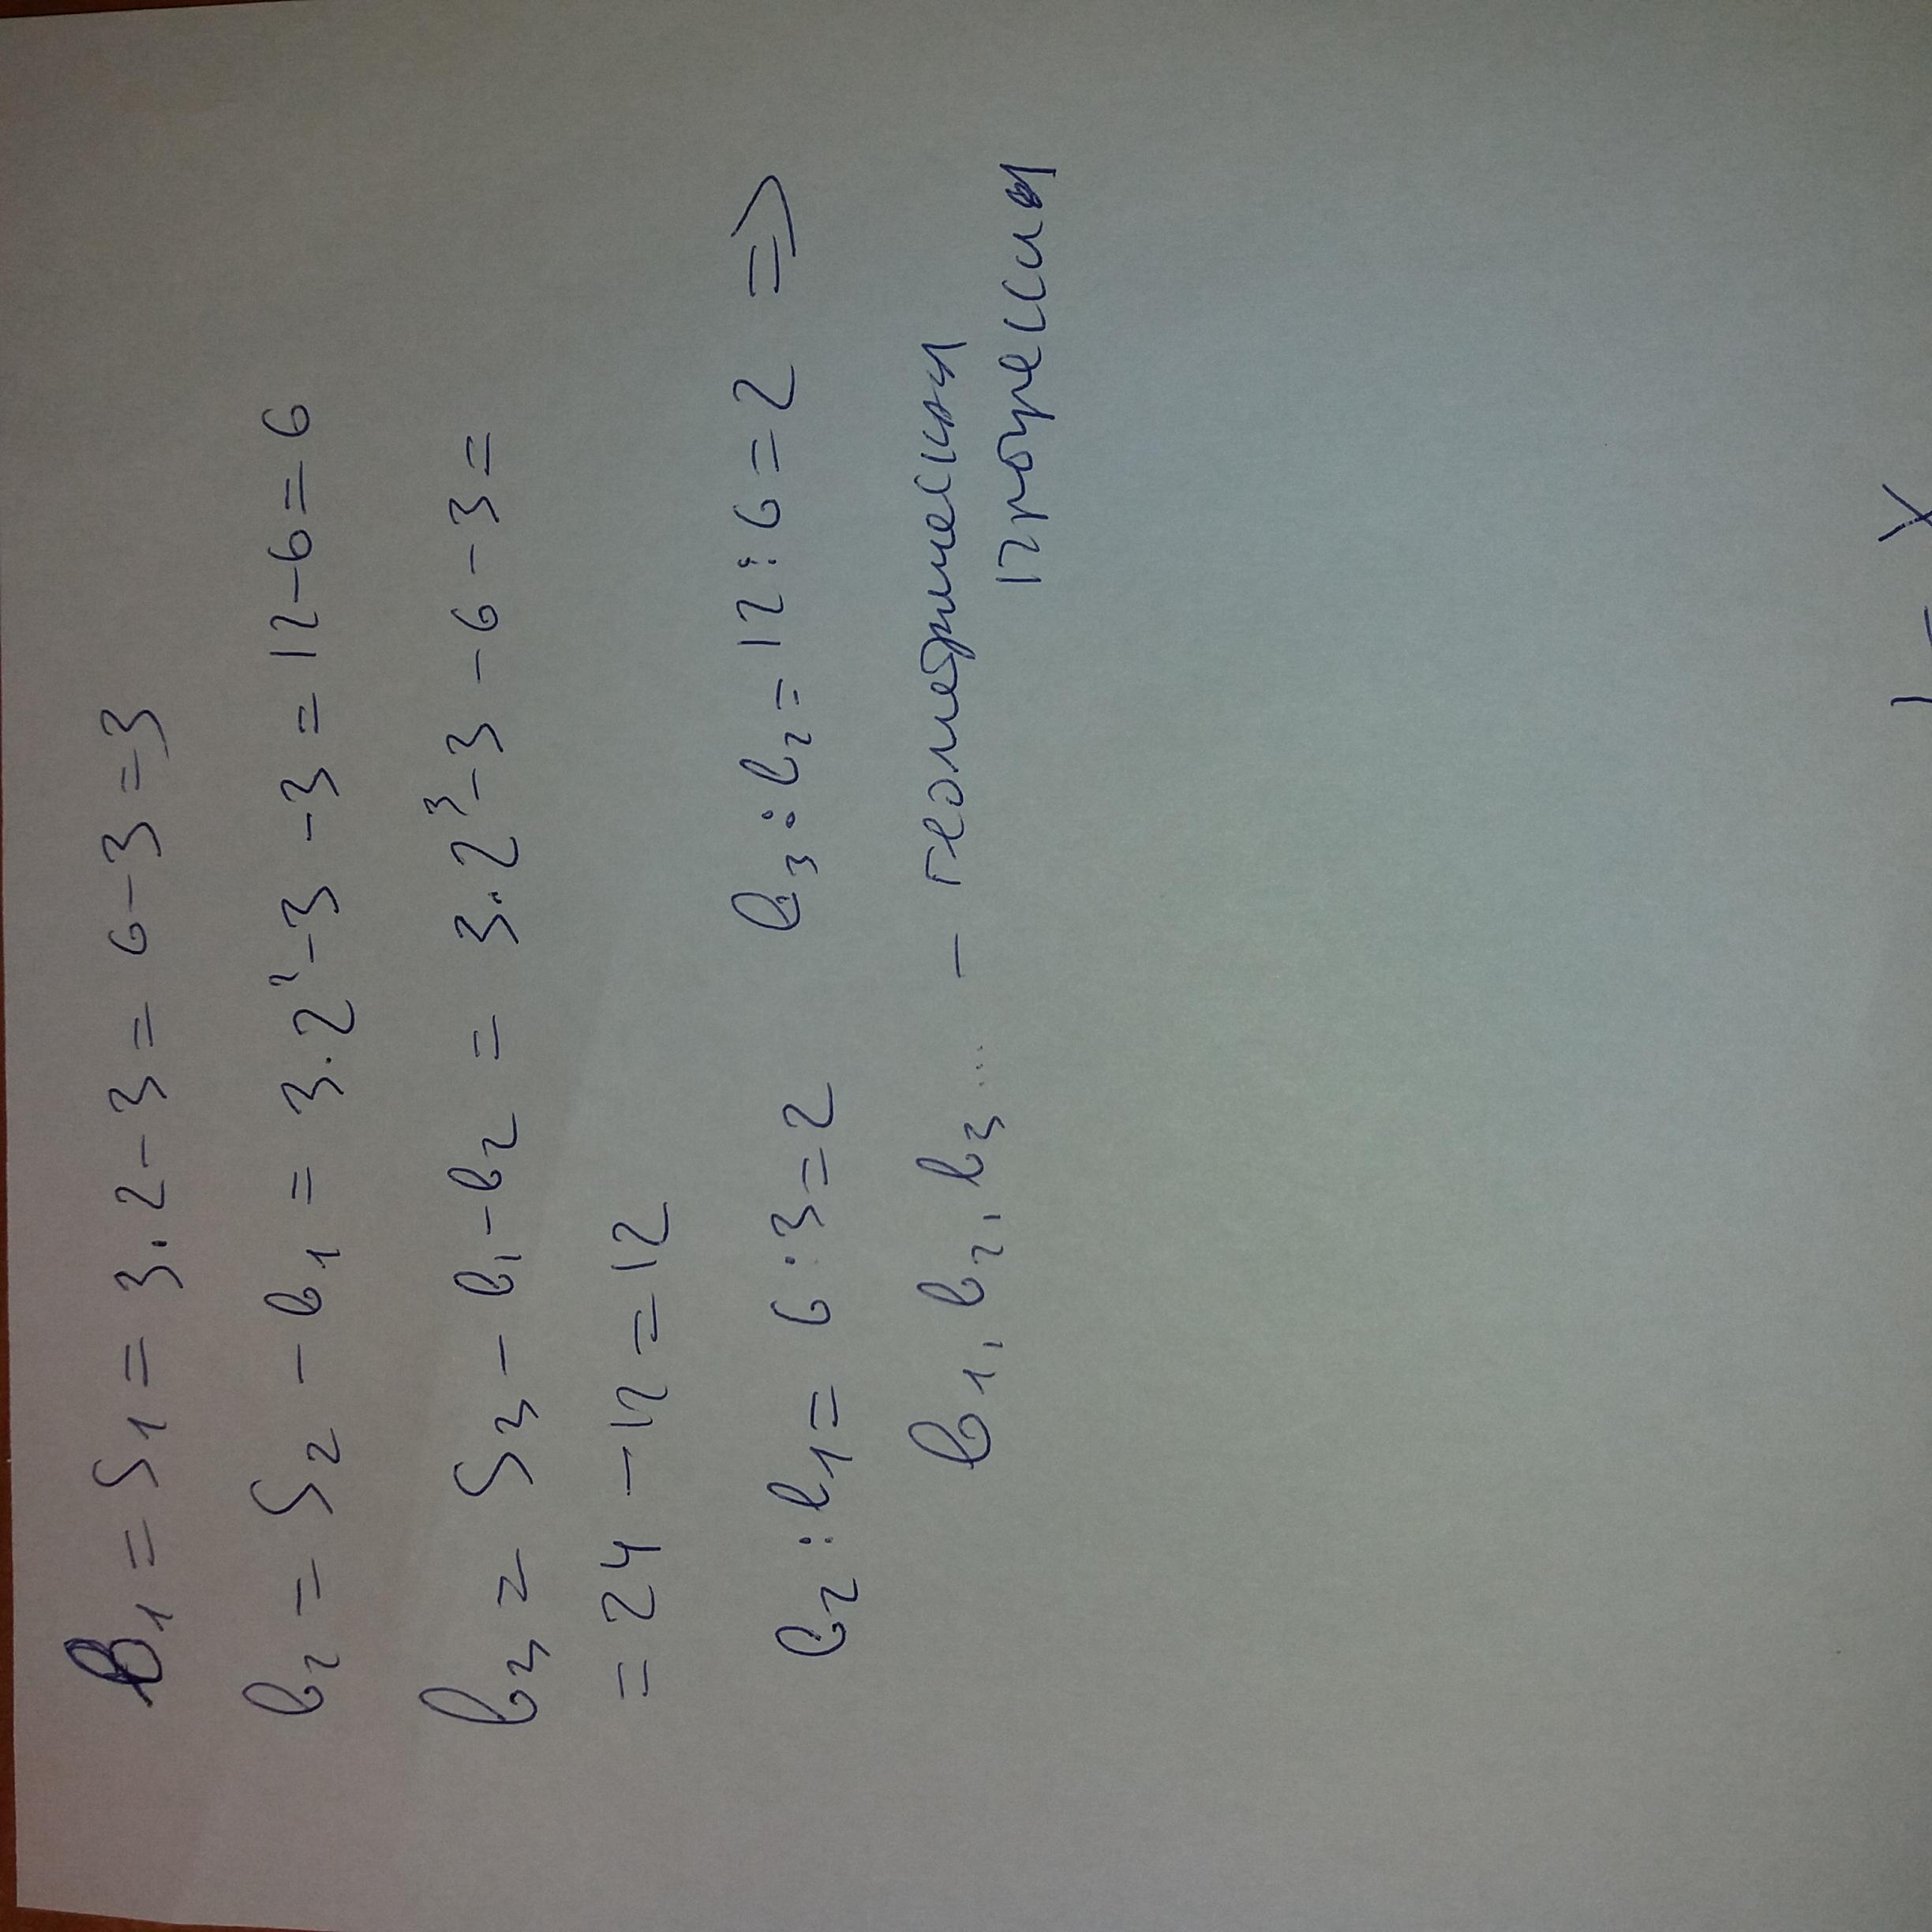 в₁ = S₁ = 3·2-3 = 6-3=3
в₂ = S₂ - в₁ = 3·2²-3-3 = 12-6=6
в₃ = S₃ - в₁-в₂ = 3·2³-3-6-3=
=24-12=12
в₂:в₁=6:3=2 в₃:в₂=12:6=2 =>
в₁, в₂, в₃... - геометрическая
прогрессия